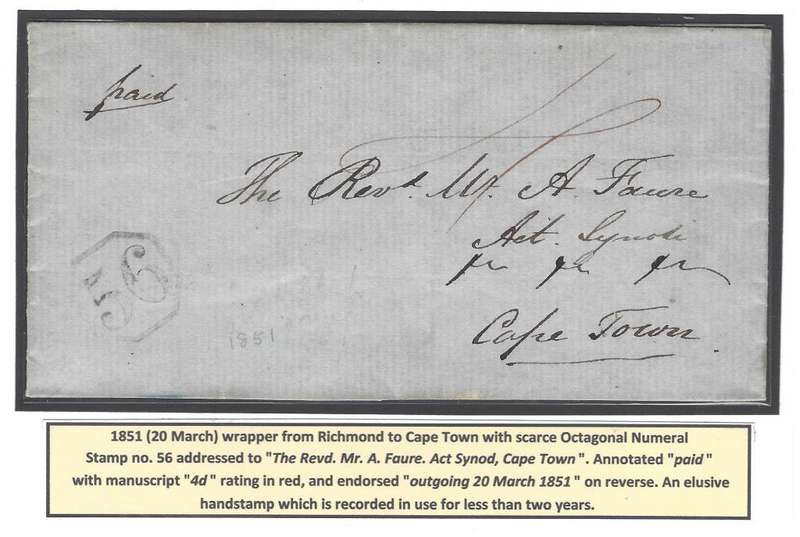 paid
The Revd. Mr. A. Faure
Act. Synodi
Cape Town.
56
1851
1851 (20 March) wrapper from Richmond to Cape Town with scarce Octagonal Numeral
Stamp no. 56 addressed to "The Revd. Mr. A. Faure. Act Synod, Cape Town". Annotated "paid"
with manuscript "4d" rating in red, and endorsed "outgoing 20 March 1851" on reverse. An elusive
handstamp which is recorded in use for less than two years.